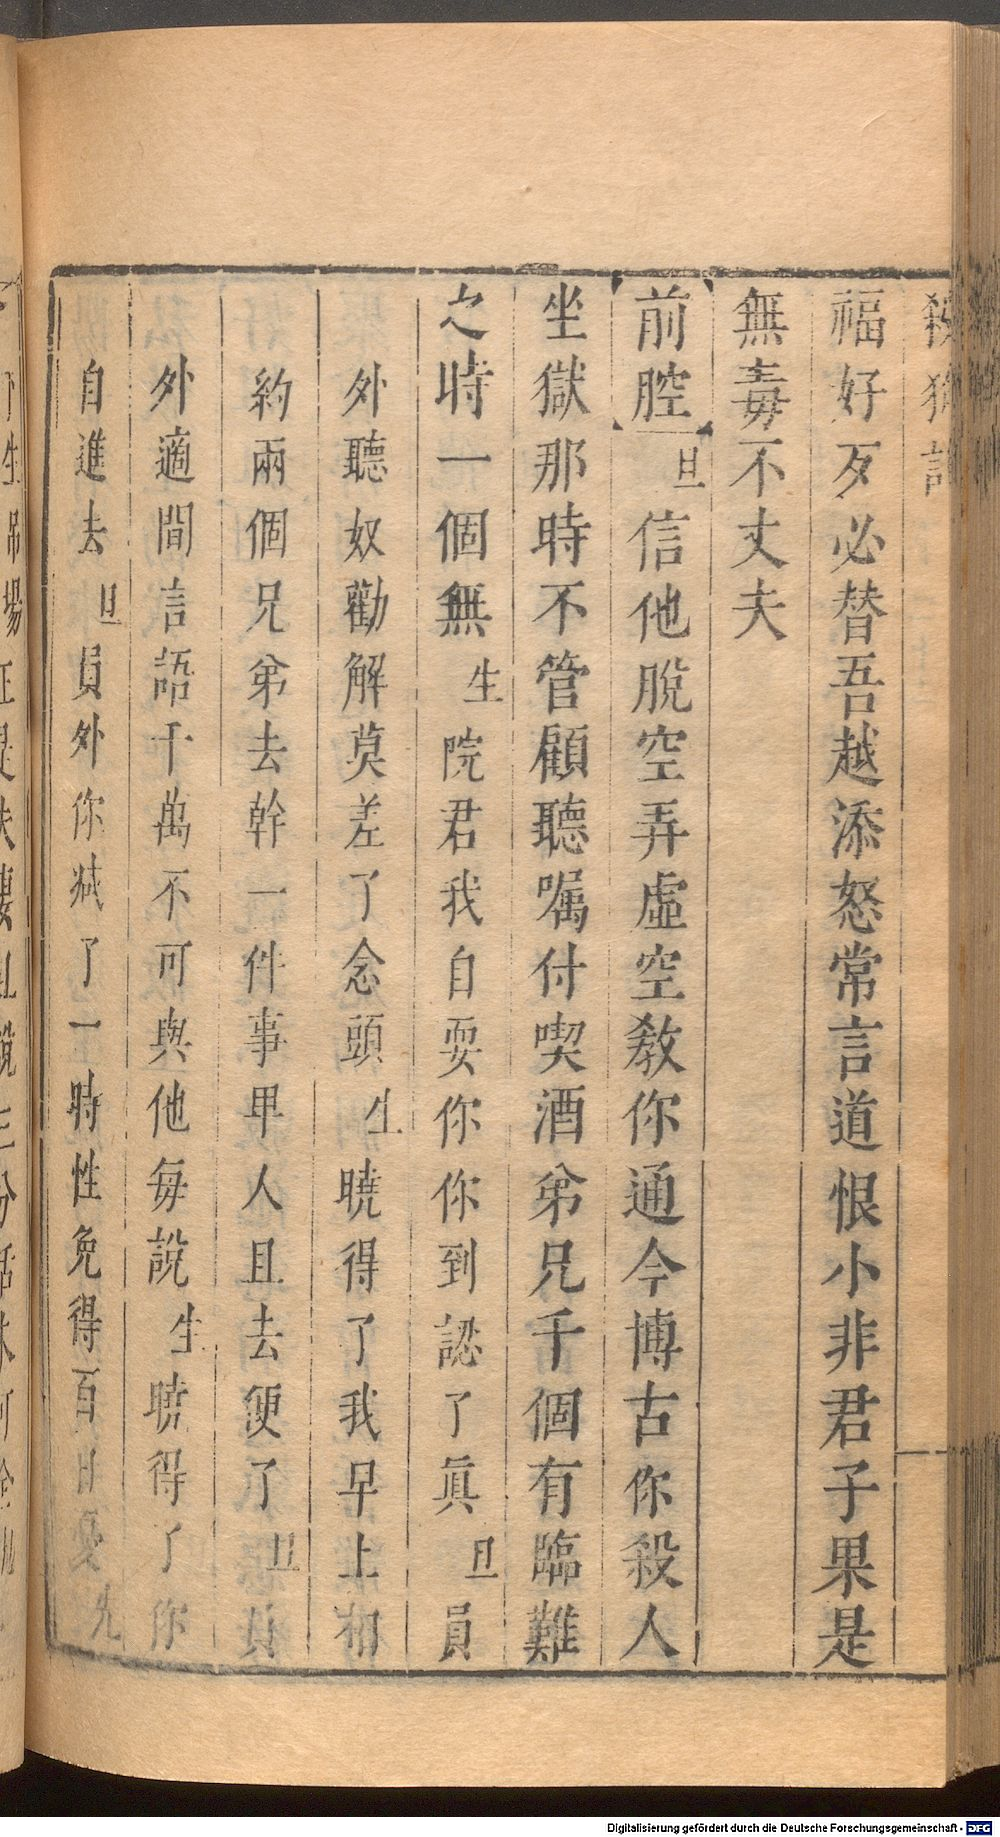 殺狗記
福好歹必替吾越添怒常言道恨小非君子果是
無毒不丈夫
【前腔】旦信他脫空弄虛空教你通今博古你殺人
坐獄那時不管顧聽囑付喫酒弟兄千個有臨難
之時一個無生院君我自耍你你到認了真旦員
外聽奴勸解莫差了念頭生曉得了我早上相
約兩個兄弟去幹一件事甲人且去便了旦員
外適間言語千萬不可與他每說生曉得了你
自進去旦員外你減了一時性免得百日憂先
Digitalisierung gefördert durch die Deutsche Forschungsgemeinschaft - DFG